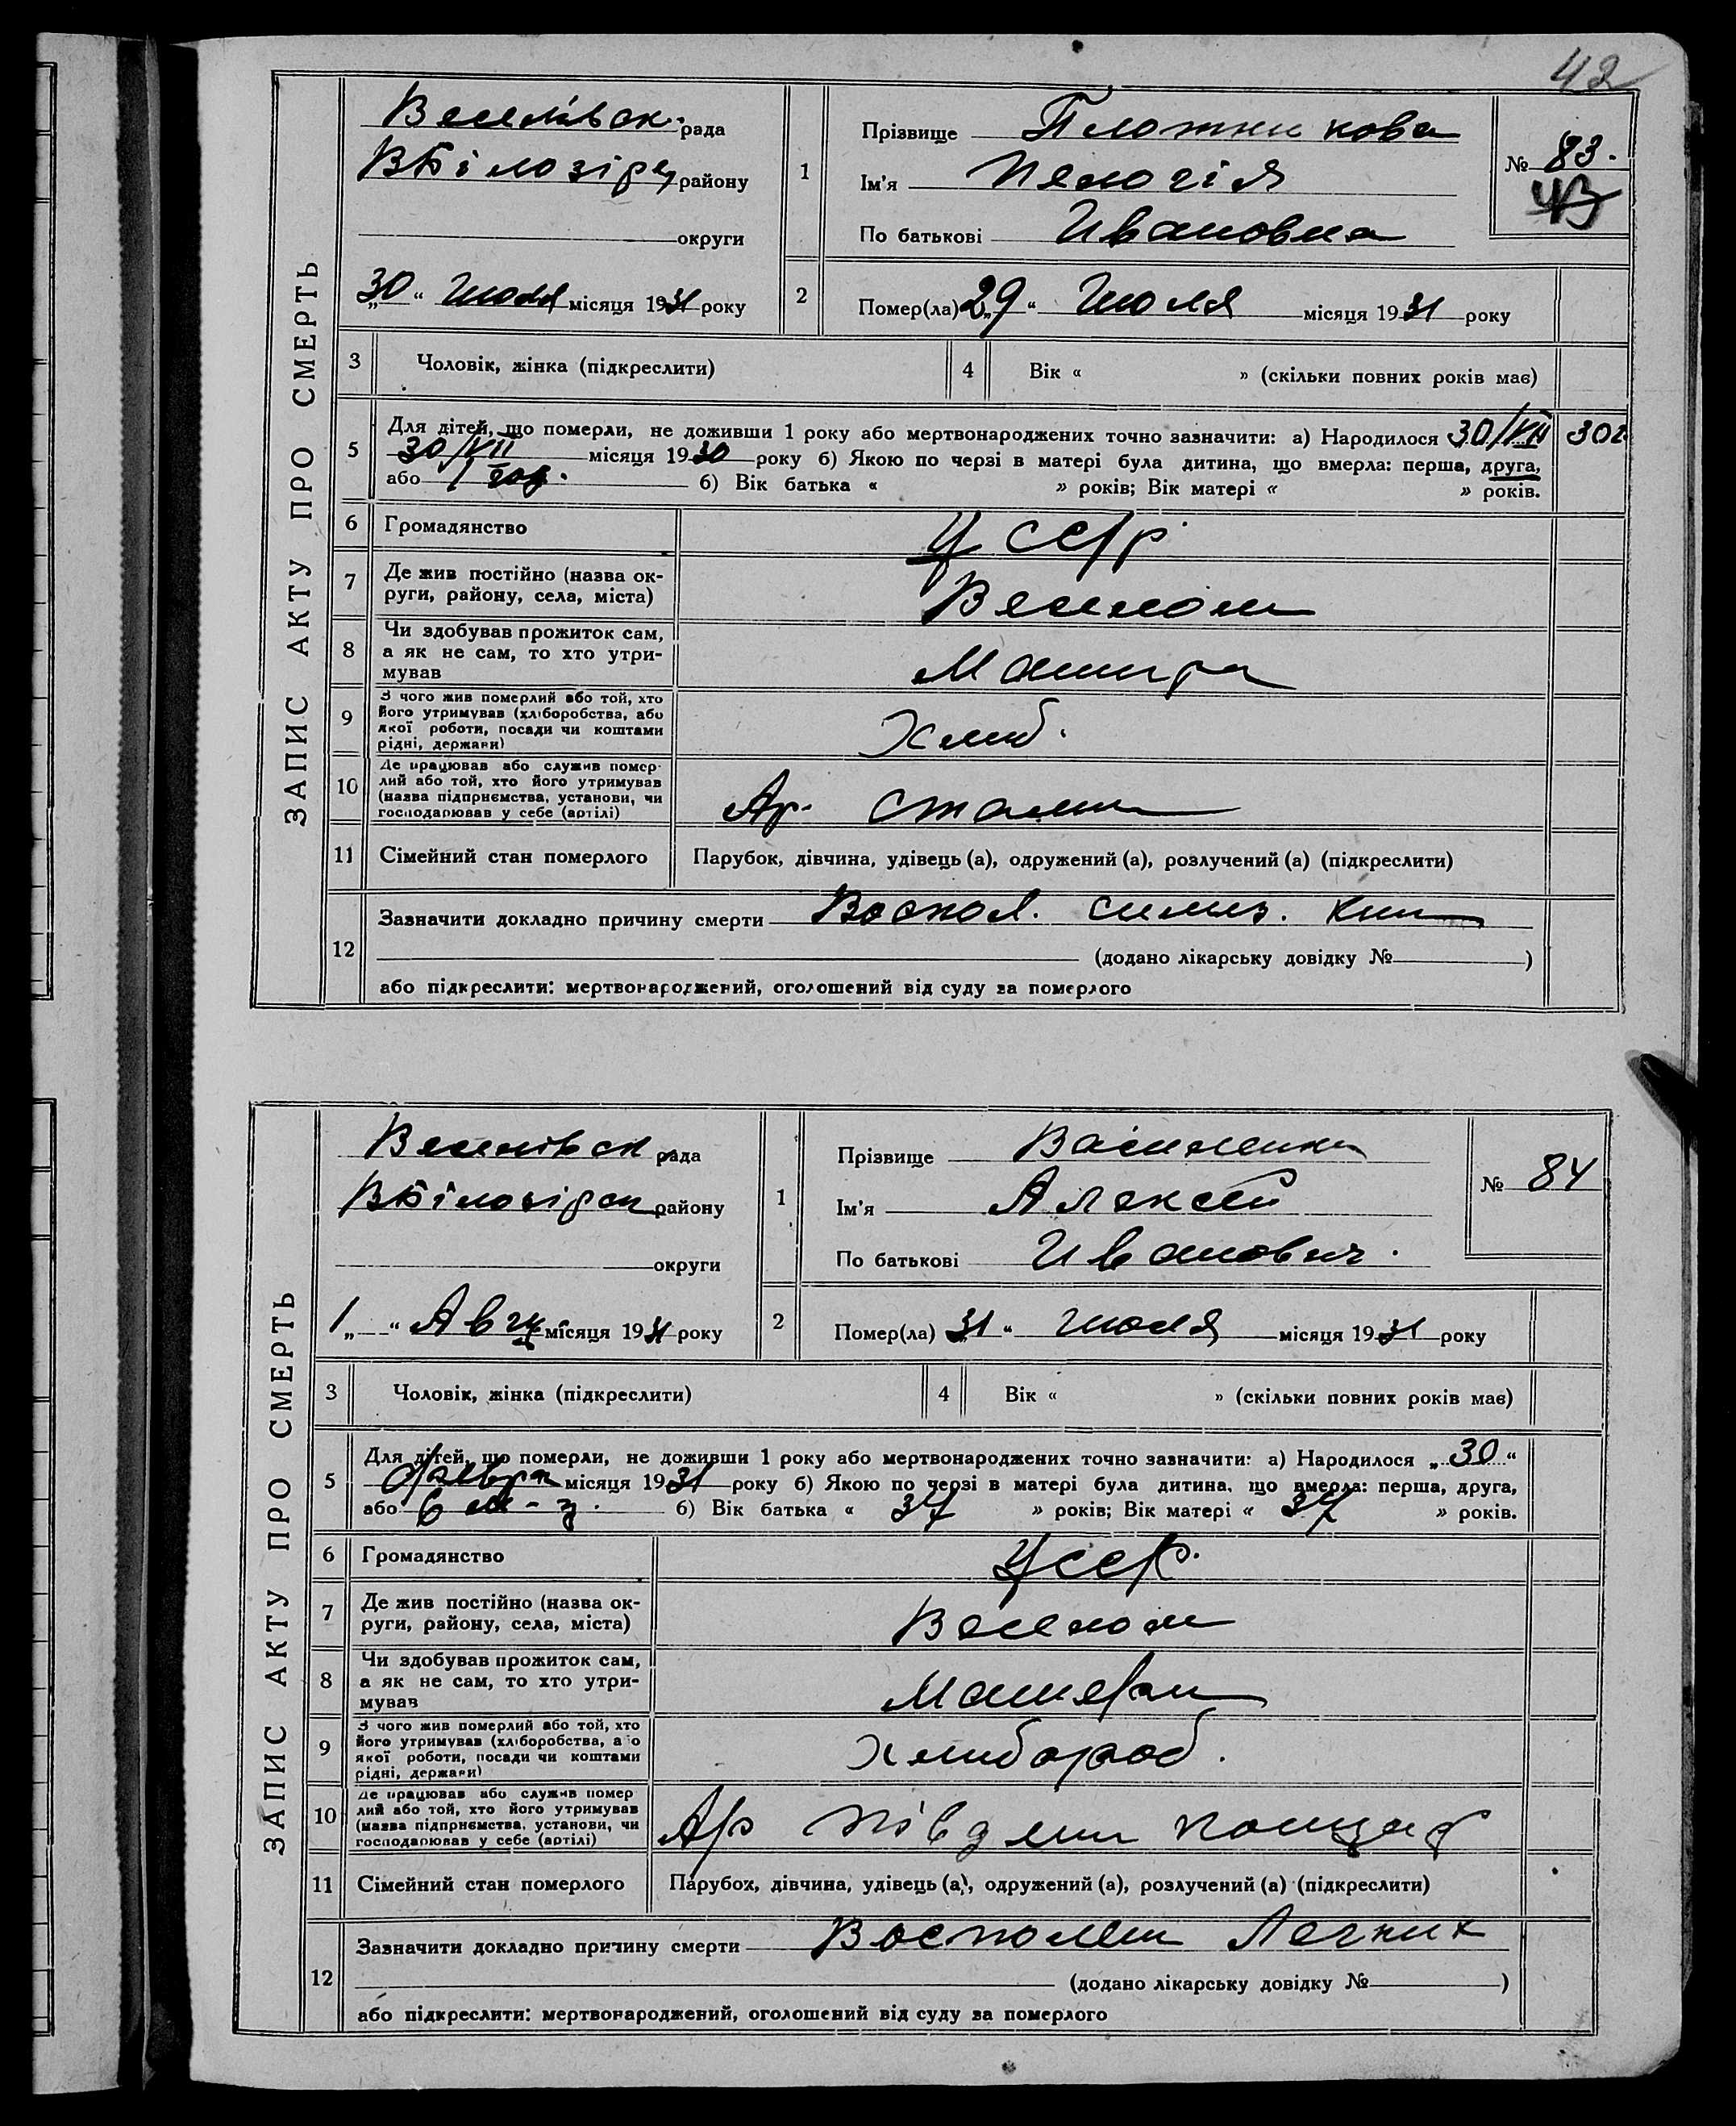 42
ЗАПИС АКТУ ПРО СМЕРТЬ
Веселівск. рада
ВБілозірц району
округи
„30“ Июля місяця 1931 року
1
Прізвище Плотникова
Ім'я Пелогія
По батькові Ивановна
№ 83.
43
2
Помер(ла) „29“ Июля місяця 1931 року
3 Чоловік, жінка (підкреслити)
4 Вік « » (скільки повних років має)
5 Для дітей, що померли, не доживши 1 року або мертвонароджених точно зазначити: а) Народилося 30/VII
30/VII місяця 1930 року б) Якою по черзі в матері була дитина, що вмерла: перша, друга,
або 1 год. б) Вік батька « » років; Вік матері « » років.
6 Громадянство УССР
7 Де жив постійно (назва ок-
руги, району, села, міста) Веселом
8 Чи здобував прожиток сам,
а як не сам, то хто утри-
мував
9 З чого жив померлий або той, хто
його утримував (хліборобства, або
якої роботи, посади чи коштами
рідні, держави) Хлиб.
10 Де працював або служив помер-
лий або той, хто його утримував
(назва підприємства, установи, чи
господарював у себе (артілі) Ар. Сталин
11 Сімейний стан померлого Парубок, дівчина, удівець (а), одружений (а), розлучений (а) (підкреслити)
12 Зазначити докладно причину смерти Воспол.
(додано лікарську довідку № )
або підкреслити: мертвонароджений, оголошений від суду за померлого
ЗАПИС АКТУ ПРО СМЕРТЬ
Веселівск рада
ВБілозірск району
округи
„1“ Авгу місяця 1931 року
1
Прізвище Василенко
Ім'я Алексей
По батькові Иванович.
№ 84
2
Помер(ла) „31“ июля місяця 1931 року
3 Чоловік, жінка (підкреслити)
4 Вік « » (скільки повних років має)
5 Для дітей, що померли, не доживши 1 року або мертвонароджених точно зазначити: а) Народилося „30“
февра місяця 1931 року б) Якою по черзі в матері була дитина, що вмерла: перша, друга,
або 6 м-ц. б) Вік батька « 37 » років; Вік матері « 37 » років.
6 Громадянство УССР.
7 Де жив постійно (назва ок-
руги, району, села, міста) Веселом
8 Чи здобував прожиток сам,
а як не сам, то хто утри-
мував
9 З чого жив померлий або той, хто
його утримував (хліборобства, або
якої роботи, посади чи коштами
рідні, держави) Хлибороб.
10 Де працював або служив помер
лий або той, хто його утримував
(назва підприємства, установи, чи
господарював у себе (артілі) Ар
11 Сімейний стан померлого Парубок, дівчина, удівець (а), одружений (а), розлучений (а) (підкреслити)
12 Зазначити докладно причину смерти Восполен Легких
(додано лікарську довідку № )
або підкреслити: мертвонароджений, оголошений від суду за померлого